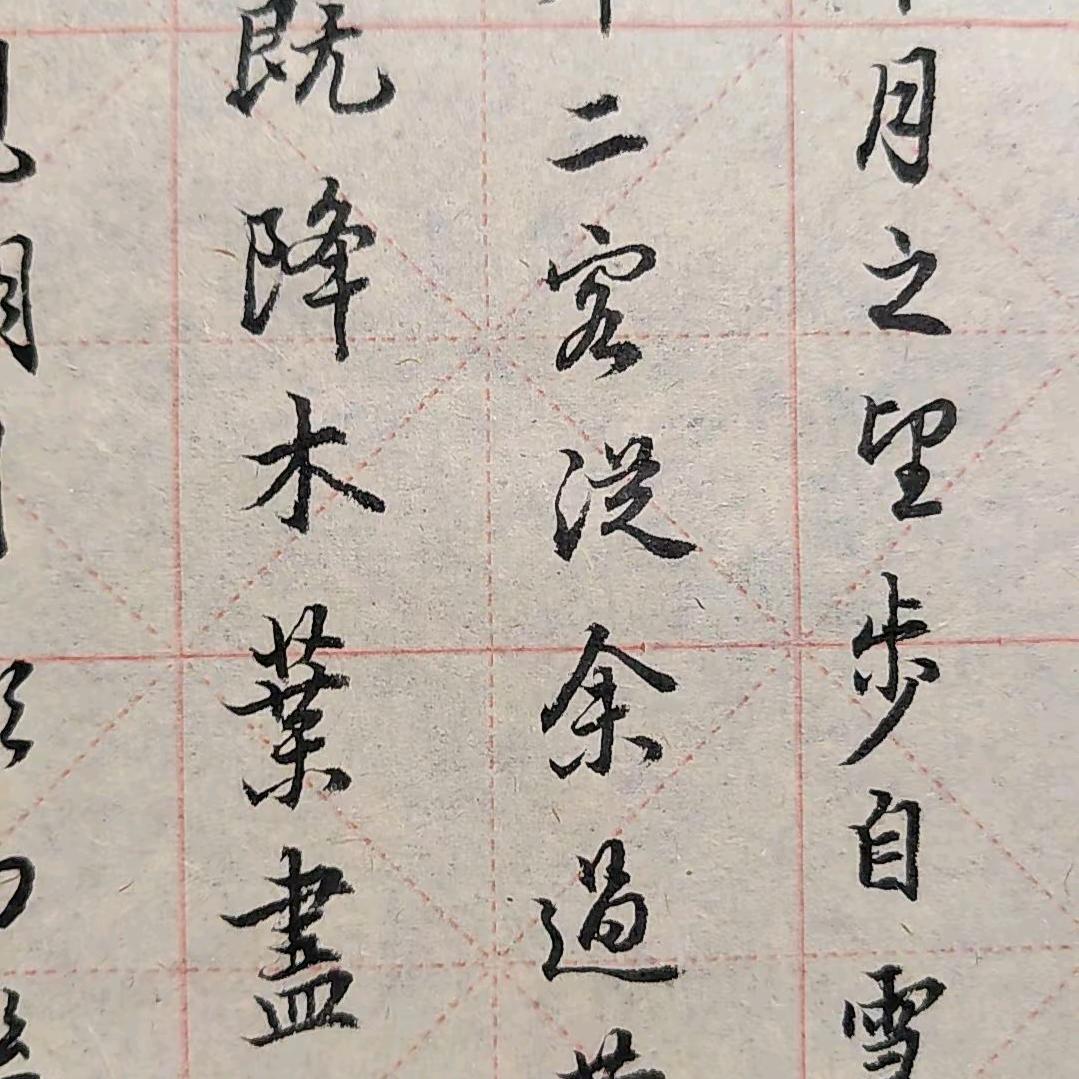 月之望步自雪
二客從余過黄
既降木葉盡